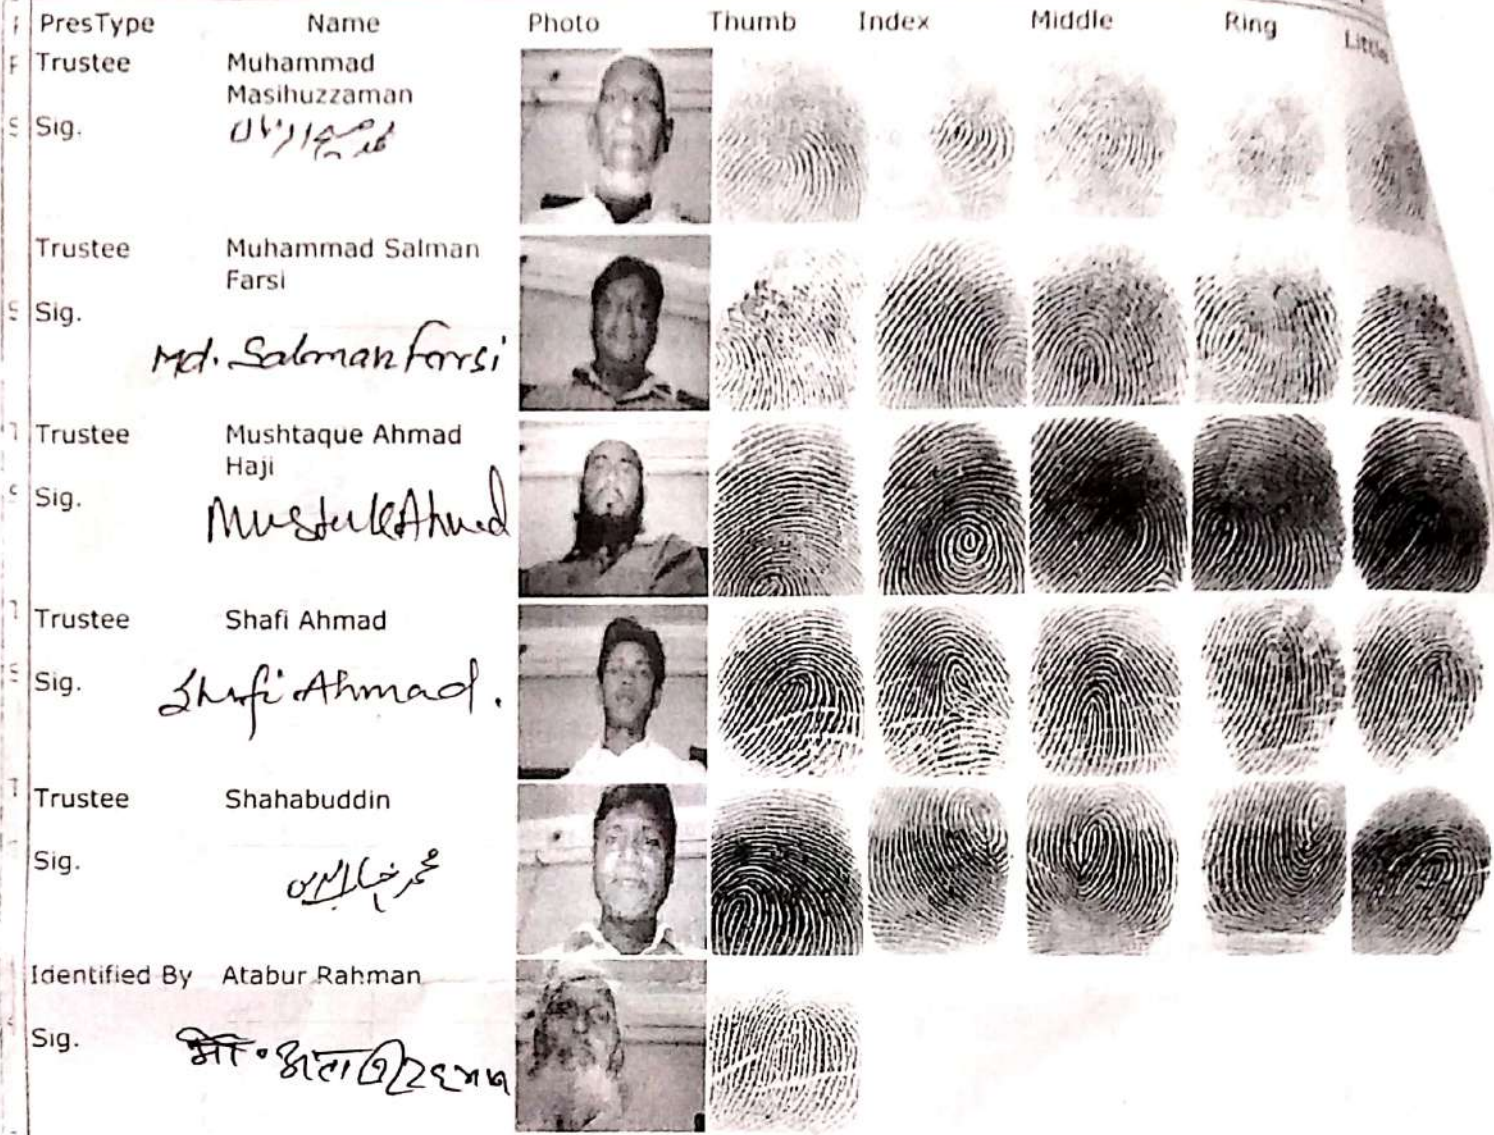 PresType Name Photo Thumb Index Middle Ring Little
Trustee Muhammad
Masihuzzaman
Sig.
Trustee Muhammad Salman
Farsi
Sig.
Md. Salman Farsi
Trustee Mushtaque Ahmad
Haji
Sig.
Trustee Shafi Ahmad
Sig.
Shafi Ahmad.
Trustee Shahabuddin
Sig.
Identified By Atabur Rahman
Sig.